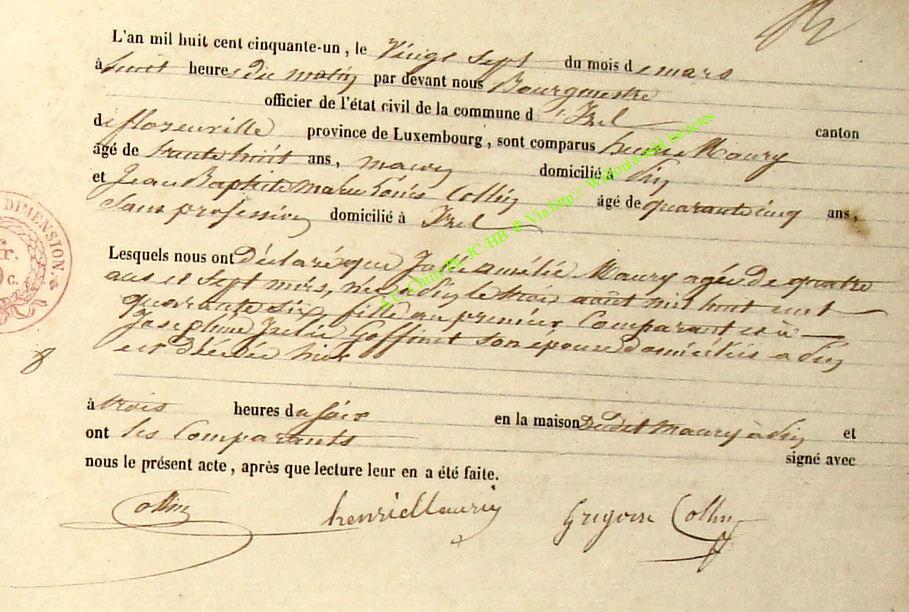 L'an mil huit cent cinquante-un, le Vingt sept du mois de mars
à huit heures du matin par devant nous Bourgmestre
officier de l'état civil de la commune d'Izel canton
de florenville province de Luxembourg, sont comparus henri Maury
âgé de trente huit ans, domicilié à
et Jean Baptiste Marie Louis Collin âgé de quarante cinq ans,
Sans profession domicilié à Izel
Lesquels nous ont Déclaré que Julie amélie Maury agée de quatre
ans et sept mois, née le trois août mil huit cent
quarante six, fille du premier Comparant et à
Josephine Julie Goffinet son epouse domiciliés à
est décédée hier
à trois heures du soir en la maison Dudit Maury à et
ont les Comparants signé avec
nous le présent acte, après que lecture leur en a été faite.
Collin henri Maury Grégoire Collin
DIMENSION.